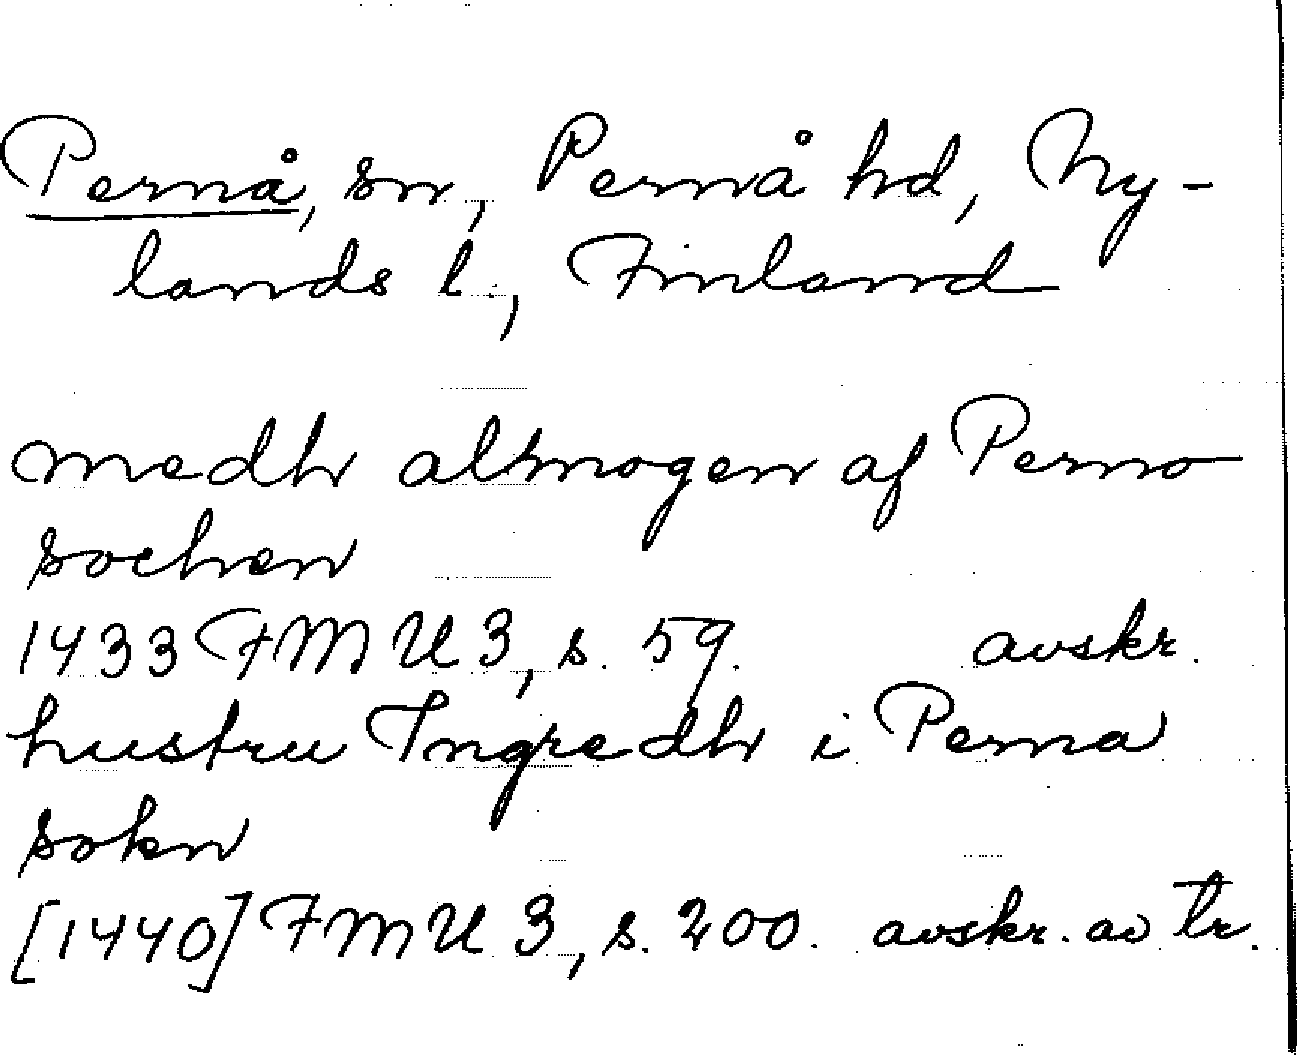 Pernå, sn, Pernå hd, Ny-
lands l., Finland
medh almogen af Perno
sochen
1433 FMU 3, s. 59. avskr.
hustru Ingredh i Perna
sokn
[1440] FMU 3, s. 200. avskr. av tr.